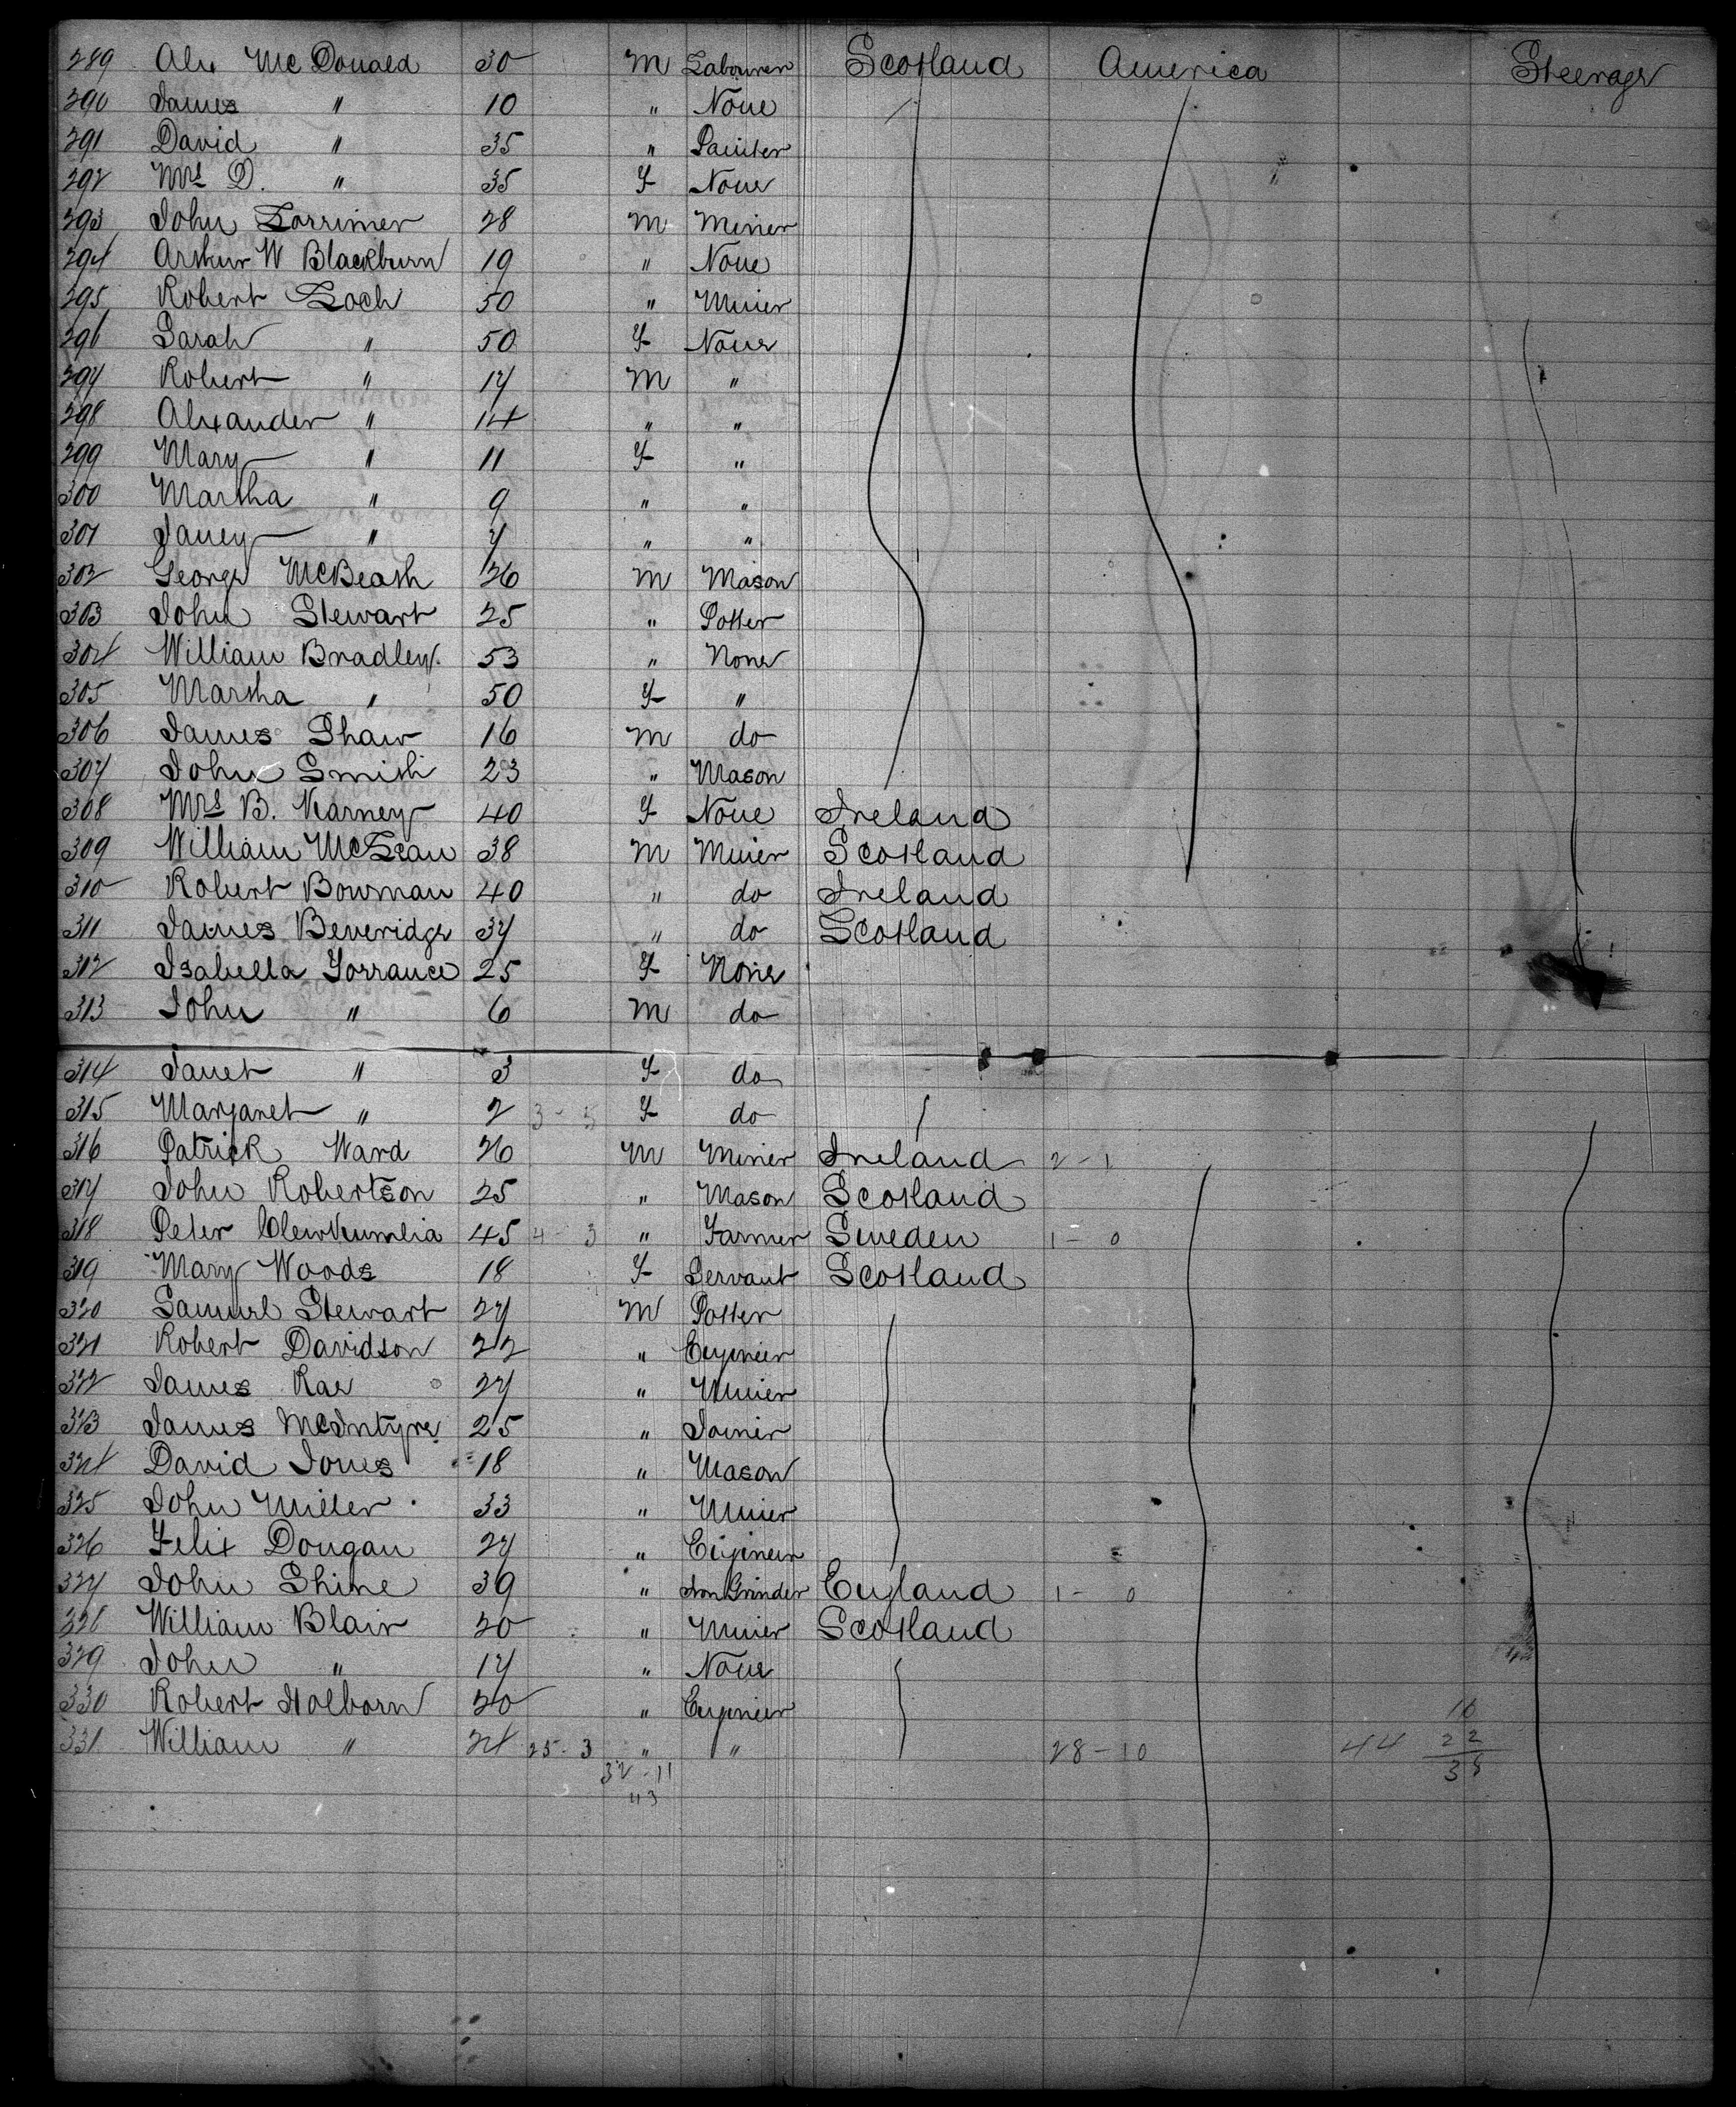 289 Alex McDonald 30 M Labourer Scotland America Steerage
290 James " 10 " None
291 David " 35 " Painter
292 Mrs D. " 35 F None
293 John Lorrimer 28 M Miner
294 Arthur W Blackburn 19 " None
295 Robert Loch 50 " Miner
296 Sarah " 50 F None
297 Robert " 17 M "
298 Alexander " 14 " "
299 Mary " 11 F "
300 Martha " 9 " "
301 Janey " 7 " "
302 George McBeath 26 M Mason
303 John Stewart 25 " Potter
304 William Bradley. 53 " None
305 Martha " 50 F "
306 James Shaw 16 M do
307 John Smith 23 " Mason
308 Mrs B. Kearney 40 F None Ireland
309 William McLean 38 M Miner Scotland
310 Robert Bowman 40 " do Ireland
311 James Beveridge 37 " do Scotland
312 Isabella Torrance 25 F None
313 John " 6 M do
314 Janet " 3 F do
315 Margaret " 2 3-5 F do
316 Patrick Ward 26 M Miner Ireland 2-1
317 John Robertson 25 " Mason Scotland
318 Peter 45 4-3 " Farmer Sweden 1-0
319 Mary Woods 18 F Servant Scotland
320 Samuel Stewart 27 M Potter
321 Robert Davidson 22 " Engineer
322 James Rae 27 " Miner
323 James McIntyre 25 " Joiner
324 David Jones 18 " Mason
325 John Miller 33 " Miner
326 Felix Dougan 27 " Engineer
327 John Shine 39 " Iron Grinder England 1-0
328 William Blair 20 " Miner Scotland
329 John " 17 " None
330 Robert Holborn 20 " Engineer 16
331 William " 24 25-3 " " 28-10 44 22
32-11 38
43